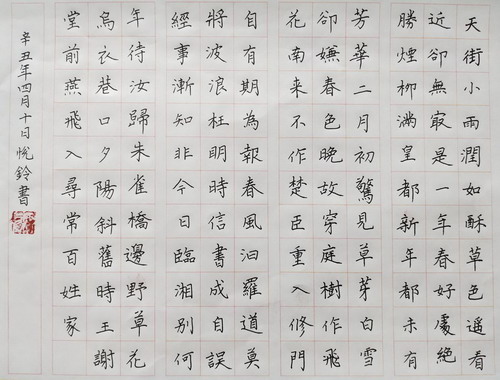 天街小雨潤如酥草色遙看
近卻無最是一年春好處絕
勝煙柳滿皇都新年都未有
芳華二月初驚見草芽白雪
卻嫌春色晚故穿庭樹作飛
花南來不作楚臣重入修門
自有期為報春風汨羅道莫
將波浪枉明時信書成自誤
經事漸知非今日臨湘別何
年待汝歸朱雀橋邊野草花
烏衣巷口夕陽斜舊時王謝
堂前燕飛入尋常百姓家
辛丑年四月十日悅鈴書